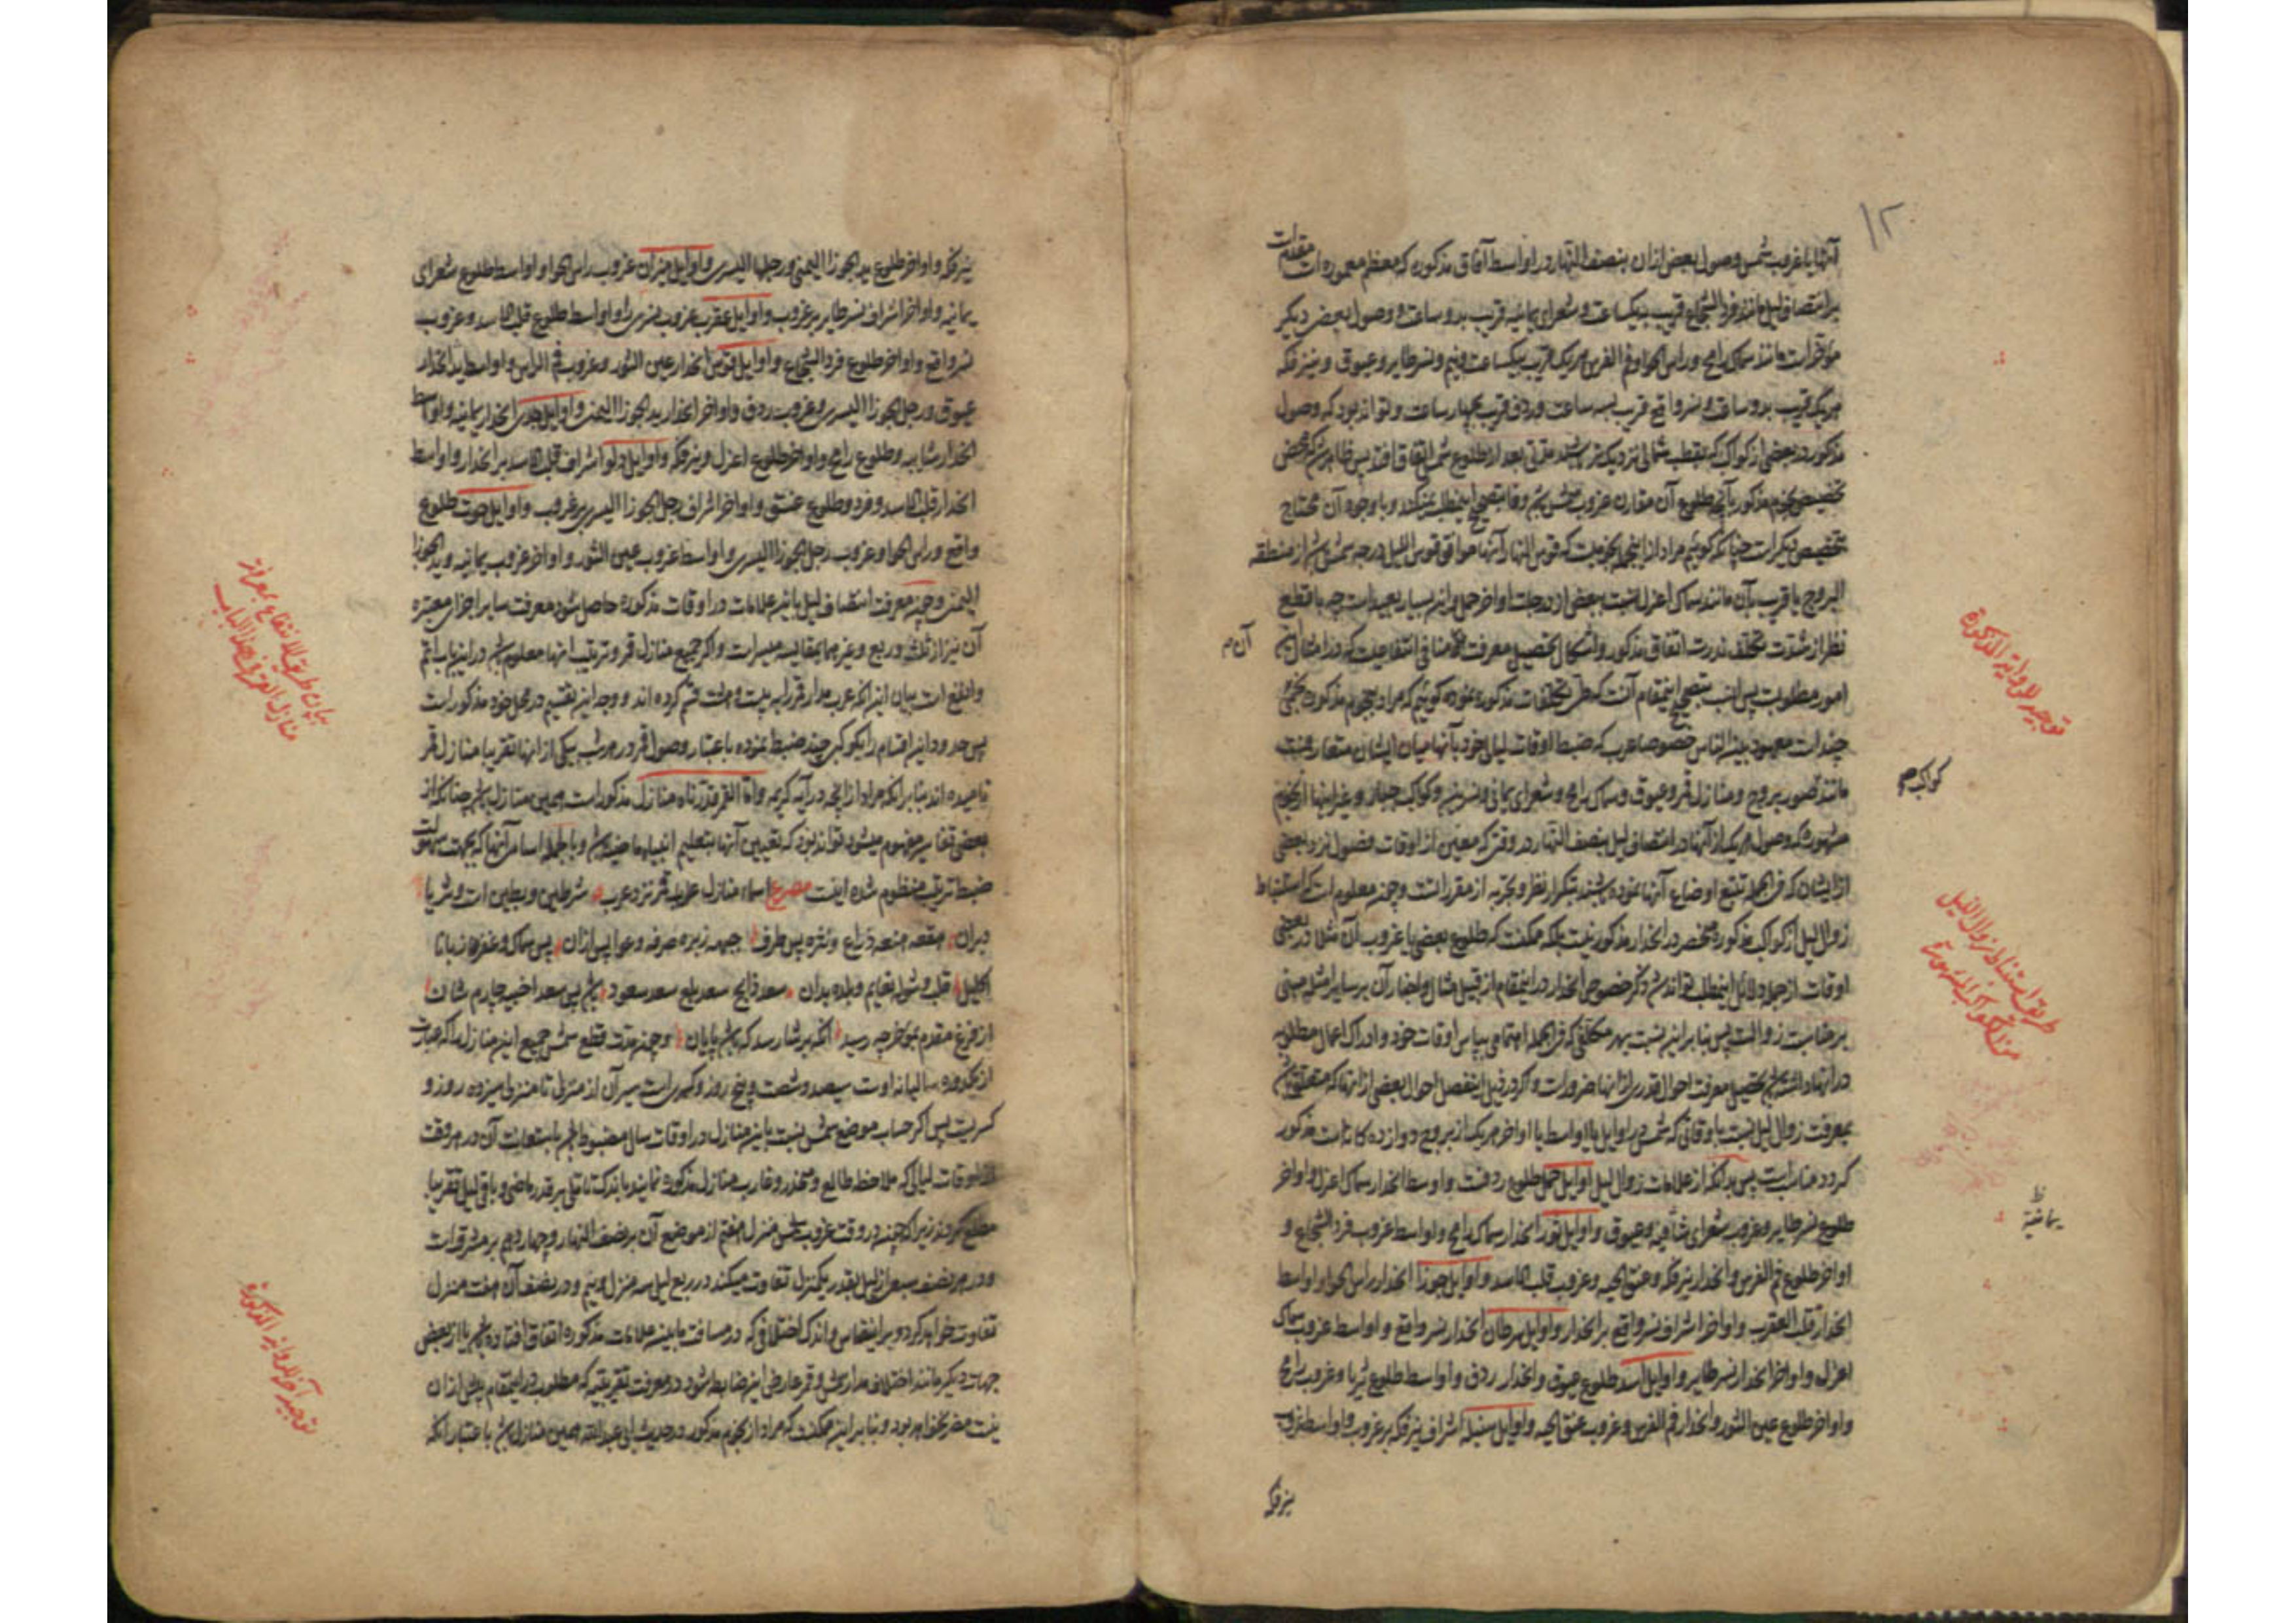 ۱۲
آنها با غروب شمس وصول بعضی ازان بنصف النهار در اواسط آفاق مذکوره که معظم معموره است مقدمات
بر انتصاف لیل مانند فرد الشجاع قریب بیکساعت و شعرای یمانیه قریب بدو ساعت و وصول بعضی دیگر
مؤخرات مانند سماک رامح و راس الحوا و فم الفرس هریک قریب بیکساعت و نیم و نسر طایر و عیوق و نیر فکه
هریک قریب بدو ساعت و نسر واقع قریب بسه ساعت و ردف قریب بچهار ساعت و تواند بود که وصول
مذکور در بعضی از کواکب که بقطب شمالی نزدیکتر باشد مدتی بعد از طلوع شمس اتفاق افتد پس ظاهر شد که محض
تخصیص نجوم مذکور بآنچه طلوع آن مقارن غروب شمس باشد وفا بتصحیح اینمطلب نمیکند و با وجود آن محتاج
بتخصیص دیگر است چنانکه گوئیم مراد از اینجا نجومیست که قوس النهار آنها موافق قوس اللیل درجه شمس باشد از منطقه
البروج یا قریب بآن مانند سماک اعزل نسبت ببعضی از درجات اواخر حمل و این بسیار بعید است چه با قطع
نظر از شدت تکلف ندرت اتفاق مذکور و اشکال تحصیل معرفت منافی انتفاعیست که در امثال این
آن م
امور مطلوبست پس انسب بتصحیح اینمقام آنست که طی تکلفات مذکوره نموده گوئیم که مراد بنجوم مذکوره نجمی
چند است معهود بین الناس خصوصا عرب که ضبط اوقات لیل خود بآنها میان ایشان متعارفست
کواکب م
مانند صور بروج و منازل قمر و عیوق و سماک رامح و شعرای یمانی و نسرین و کواکب جبار و غیر اینها از نجوم
مشهوره که وصول هریک از آنها در انتصاف لیل بنصف النهار در وقتی که معین از اوقات فصول نزد بعضی
از ایشان که فی الجمله تتبع اوضاع آنها نموده باشند بتکرار نظر و تجربه از مقرراتست و چون معلوم است که استنباط
زوال لیل از کواکب مذکوره منحصر در انحدار مذکور نیست بلکه ممکنست که طلوع بعضی یا غروب آن مثلا در بعضی
اوقات از جمله دلائل اینمطلب تواند شد ذکر خصوص انحدار در اینمقام از قبیل مثال و اختیار آن بر سایر امثله مبنی
بر مناسبت زوالست پس بنا بر این نسبت بهر مکلفی که فی الجمله اهتمامی بپاس اوقات خود و ادراک اعمال مطلوبه
در آنها داشته باشد تحصیل معرفت احوال قدری از آنها ضرور است و اگر در ذیل اینفصل احوال بعضی از آنها که متعلق باشد
بمعرفت زوال لیل نسبت باوقاتی که شمس در اوایل یا اواسط یا اواخر هریک از بروج دوازده کانه است مذکور
کردد مناسبست پس بدانکه از علامات زوال لیل اوایل حمل طلوع ردفست و اواسط انحدار سماک اعزل و اواخر
طلوع نسر طایر و غروب شعرای شامیه و عیوق و اوایل ثور انحدار سماک رامح و اواسط غروب فرد الشجاع و
یمانیه ظ
اواخر طلوع فم الفرس و انحدار نیر فکه و عنق الحیه و غروب قلب الاسد و اوایل جوزا انحدار راس الحوا و اواسط
انحدار قلب العقرب و اواخر اشراف نسر واقع بر انحدار و اوایل سرطان انحدار نسر واقع و اواسط غروب سماک
اعزل و اواخر انحدار نسر طایر و اوایل اسد طلوع عیوق و انحدار ردف و اواسط طلوع ثریا و غروب رامح
و اواخر طلوع عین الثور و انحدار فم الفرس و غروب عنق الحیه و اوایل سنبله اشراف نیر فکه بر غروب و اواسط غروب
نیر فکه
توجیه للروایة المذکورة
طریق استنباط زوال اللیل
من الکواکب المشهورة
نیر فکه و اواخر طلوع ید الجوزا الیمنی و رجلها الیسری و اوایل میزان غروب راس الحوا و اواسط طلوع شعرای
یمانیه و اواخر اشراف نسر طایر بر غروب و اوایل عقرب غروب نسرین و اواسط طلوع قلب الاسد و غروب
نسر واقع و اواخر طلوع فرد الشجاع و اوایل قوس انحدار عین الثور و غروب فم الراس و اواسط ید انحدار
عیوق و رجل الجوزا الیسری و غروب ردف و اواخر انحدار ید الجوزا الیمنی و اوایل جدی انحدار یمانیه و اواسط
انحدار شامیه و طلوع رامح و اواخر طلوع اعزل و نیر فکه و اوایل دلو اشراف قلب الاسد بر انحدار و اواسط
انحدار قلب الاسد و فرد و طلوع عنق و اواخر اشراف رجل الجوزا الیسری بر غروب و اوایل حوت طلوع
واقع و راس الحوا و غروب رجل الجوزا الیسری و اواسط غروب عین الثور و اواخر غروب یمانیه و ید الجوزا
الیمنی و چون معرفت انتصاف لیل باین علامات در اوقات مذکوره حاصل شود معرفت سایر اجزای معتبره
آن نیز از ثلث و ربع و غیرهما بمقایسه میسر است و اگر جمیع منازل قمر و ترتیب آنها معلوم باشد در این باب اتم
و انفع است بیان این آنکه عرب مدار قمر را به بیست و هشت قسم کرده اند و وجه این تقسیم در محل خود مذکور است
پس حدود این اقسام را بکوکبی چند ضبط نموده باعتبار وصول قمر در هر شب بیکی از آنها تقریبا منازل قمر
نامیده اند بنا بر آنکه مراد از آنچه در آیه کریمه و القمر قدرناه منازل مذکور است همین منازل باشد چنانکه از
بعضی تفاسیر مفهوم میشود تواند بود که تعیین آنها بتعلیم انبیاء ماضیه باشد و بالجمله اسامی آنها که بجهت سهولت
ضبط ترتیب منظوم شده اینست مصرع اسماء منازل قمر نزد عرب شرطین و بطین است و ثریا
دبران هقعه هنعه ذراع و نثره پس طرف جبهه زبره صرفه و عوا پس ازان پس سماک و غفر و زبانا
اکلیل قلب و شوله نعایم و بلده بدان سعد ذابح سعد بلع سعد سعود باشد پس سعد اخبیه چارم شان
از فرغ مقدم بمؤخر چه رسید انکه برشا رسد که باشد پایان و چون مدت قطع شمس جمیع این منازل را که عبارت
از یکدوره سالیانه اوست سیصد و شصت و پنج روز و کسریست سیر آن از منزلی تا منزلی سیزده روز و
کسریست پس اگر حساب موضع شمس نسبت باین منازل در اوقات سال مضبوط باشد باستعانت آن در هر وقت
از اوقات لیالی که ملاحظه طالع و منحدر و غارب منازل مذکوره نمایند باندک تاملی بر قدر ماضی و باقی لیل تقریبا
مطلع گردند زیرا که چون در وقت غروب شمس منزل هفتم از موضع آن بر نصف النهار و چهاردهم بر مشرقست
و در هر نصف سبع از لیل بقدر یکمنزل تفاوت میکند در ربع لیل سه منزل و نیم و در نصف آن هفت منزل
تفاوت خواهد کرد و بر اینقیاس و اندک اختلافی که در مسافت ما بین علامات مذکوره اتفاق افتاده باشد یا از بعضی
جهات دیگر مانند اختلاف مدار شمس و قمر عارض این ضابطه شود در معرفت تقریبیه که مطلوب در اینمقام بیش ازان
نیست مضر نخواهد بود و بنا بر این ممکنست که مراد از نجوم مذکور در حدیث ابی عبدالله همین منازل باشد باعتبار آنکه
بیان طریق للانتفاع بمعرفة
منازل القمر فی هذا الباب
توجیه آخر للروایة المذکورة